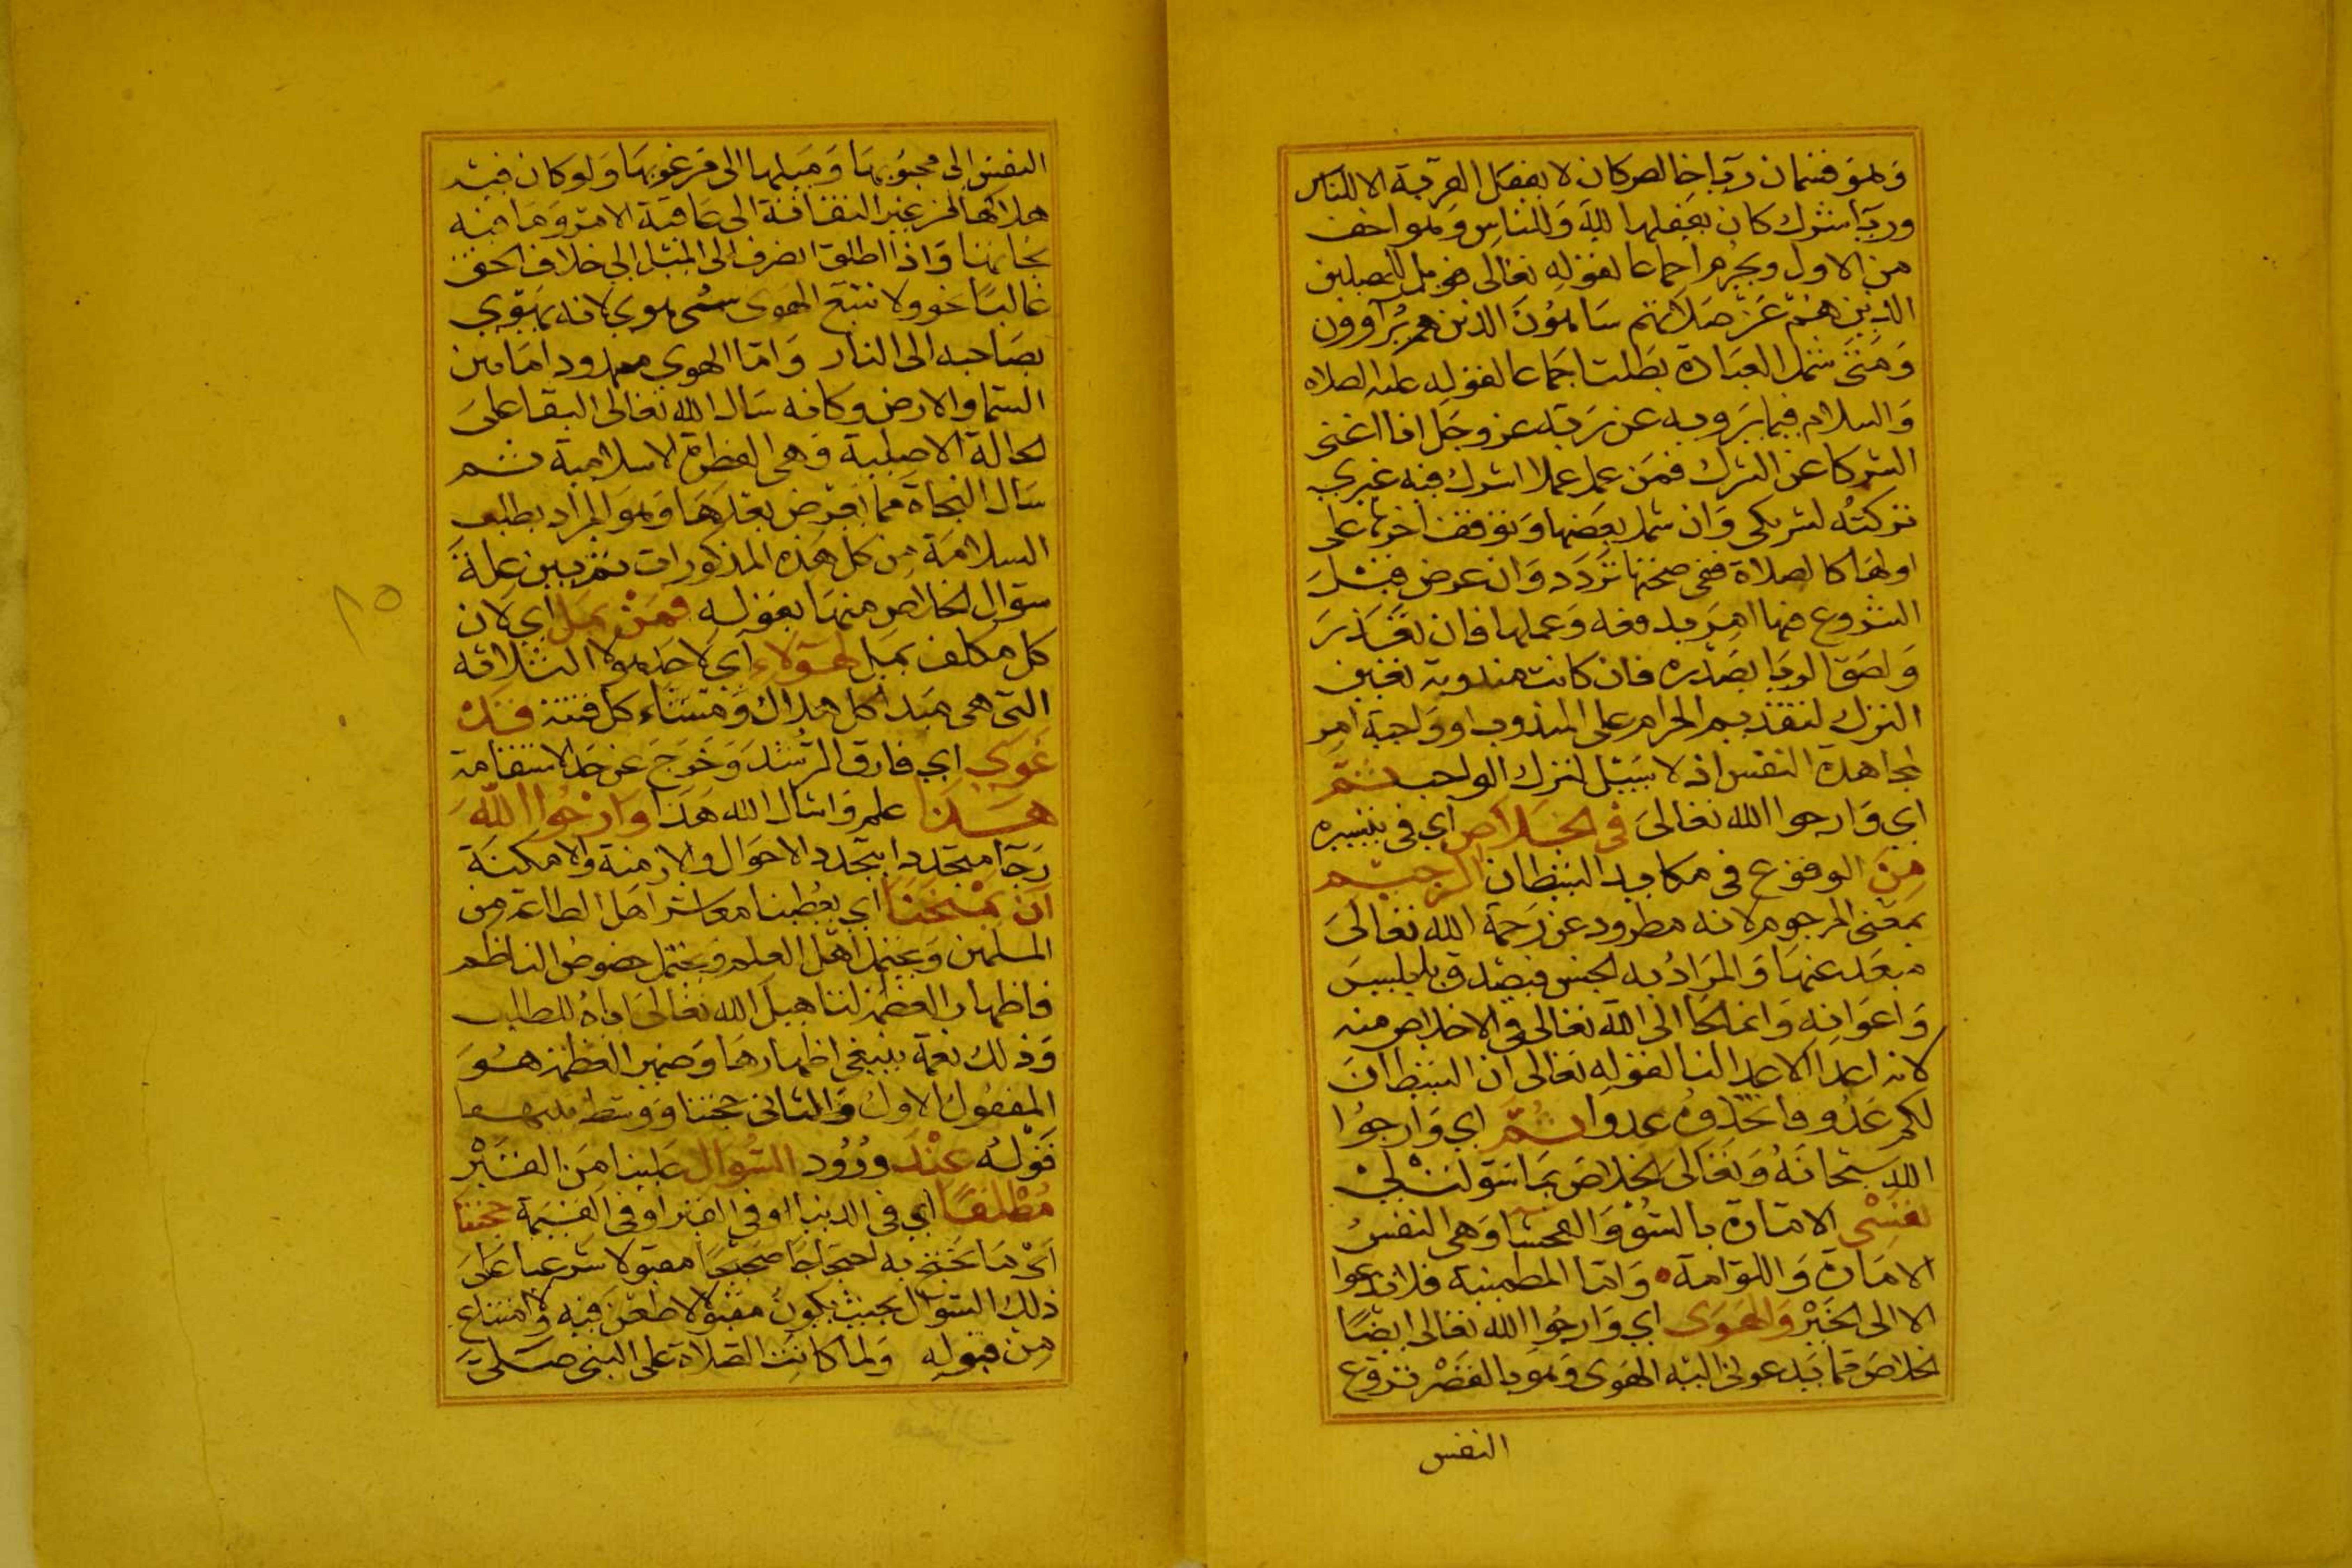 وهو قسمان ريا خالص كان لا يفعل القربة الا للناس
وريا شرك كان يفعلها لله وللناس وهو اخف
من الاول ويحرم اجماعا لقوله تعالى فويل للمصلين
الذين هم عن صلاتهم ساهون الذين هم يراوون
ومتى شمل العبادة بطلت اجماعا لقوله عليه الصلاه
والسلام فيما يرويه عن ربه عز وجل انا اغنى
الشركا عن الشرك فمن عمل عملا اشرك فيه غيري
تركته لشريكى وان شمل بعضها وتوقف اخرها على
اولها كالصلاة ففى صحتها تردد وان عرض قبل
الشروع فيها امر بدفعه وعملها فان تعذر
ولصق الريا بصدره فان كانت مندوبة تعين
الترك لتقديم المحرام على المندوب او واجبة امر
بمجاهدة النفس اذ لا سبيل لترك الواجب ثم
اي وارجوا الله تعالى فى الخلاص اي فى تيسيره
من الوقوع فى مكايد الشيطان الرجيم
بمعنى المرجوم لانه مطرود عن رحمة الله تعالى
مبعد عنها والمراد به الجنس فيصدق بابليس
واعوانه وانما لجا الى الله تعالى فى الاخلاص منه
لانه اعدا الاعدا لنا لقوله تعالى ان الشيطان
لكم عدو فاتخذوه عدوا ثم اي وارجوا
الله سبحانه وتعالى الخلاص مما تسوله لى
نفسى الامارة بالسوء والفحشا وهى النفس
الامارة واللوامة وانما المطمينة فلا تدعوا
الا الى الخير والهوى اي وارجوا الله تعالى ايضا
الخلاص مما يدعونى اليه الهوى وهو بالقصر نزوع
النفس
النفس الى محبوبها وميلها الى مرغوبها ولو كان فيه
هلاكها من غير التفاتة الى عاقبة الامر وما فيه
نجاتها واذا اطلق انصرف الى الميل الى خلاف الحق
غالبا نحو ولا تتبع الهوى سمى هوى لانه يهوي
بصاحبه الى النار واما الهوي ممدودا مابين
السما والارض وكانه سال الله تعالى البقا على
الحالة الاصلية وهى الفطرة الاسلامية ثم
سال النجاة مما يعرض بعدها وهو المراد بطلب
السلامة من كل هذه المذكورات ثم بين علة
سؤال الخلاص منها بقوله فمن يمل اي لان
كل مكلف يميل لهؤلاء اي لاحد هولا الثلاثه
التى هى مبدا كل هلاك ومنشاء كل فتنة قد
غوى اي فارق الرشد وخرج عن حد الاستقامة
هذا علم واسال الله هذا وارجوا الله
رجا متجددا بتجدد الاحوال والازمنة والامكنة
ان يمنحنا اي يعطينا معاشر اهل الطاعة من
المسلمين ويحتمل اهل العلم ويحتمل خصوص الناظم
فاظهار العظمة لتاهيل الله تعالى اياه للطلب
وذلك نعمة ينبغى اظهارها وضمير العظمة هو
المفعول الاول والثانى حجتنا ووسط بينهما
قوله عند ورود السوال علينا من القبر
مطلقا اي فى الدنيا او فى القبر او فى القيمة حجتنا
اى ما نحتج به احتجاجا صحيحا مقبولا شرعيا على
ذلك السوال بحيث يكون مقبولا لا طعن فيه ولا امتناع
من قبوله ولما كانت الصلاة على النبى صلى